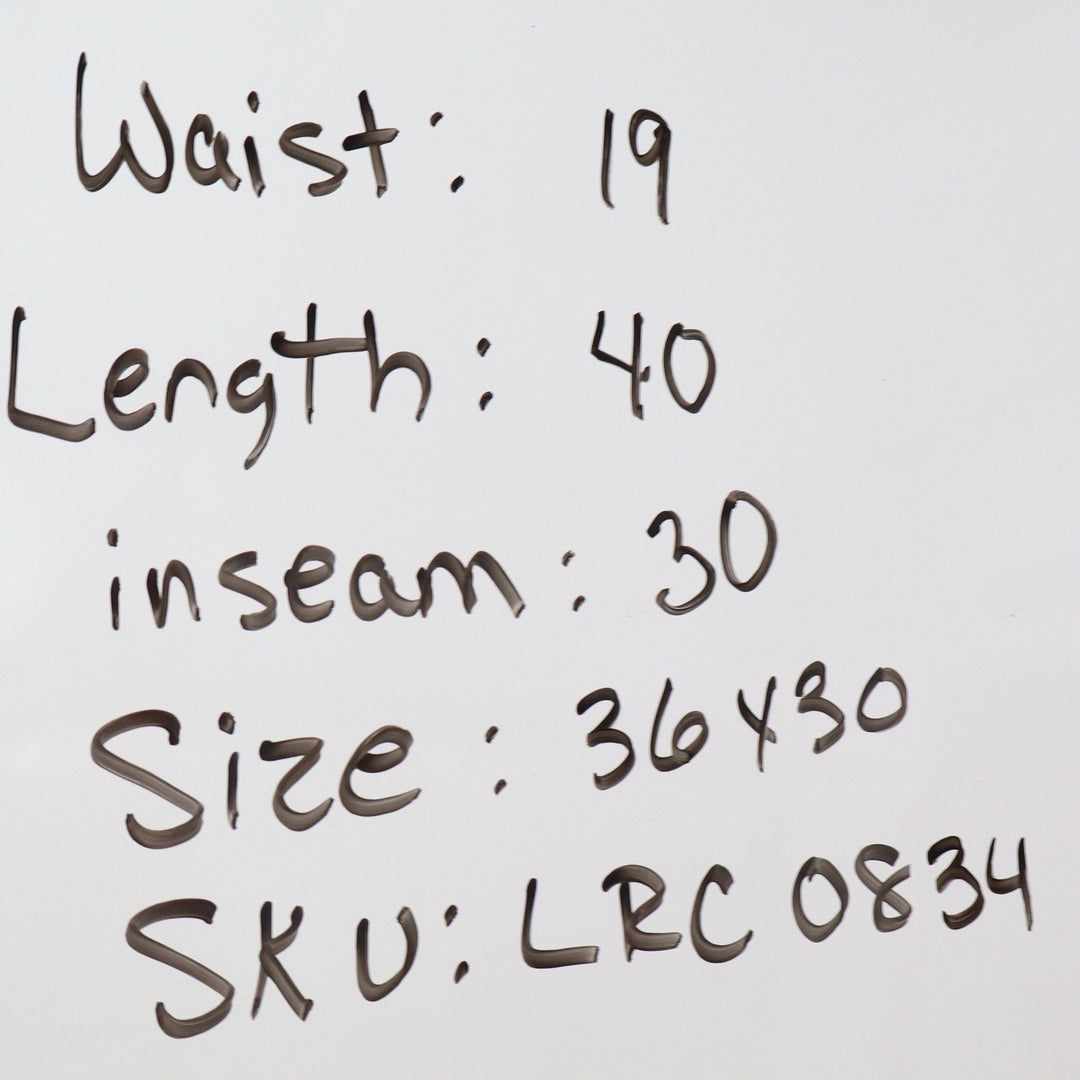 Waist: 19
Length: 40
inseam: 30
Size: 36x30
SKU: LRC 0834